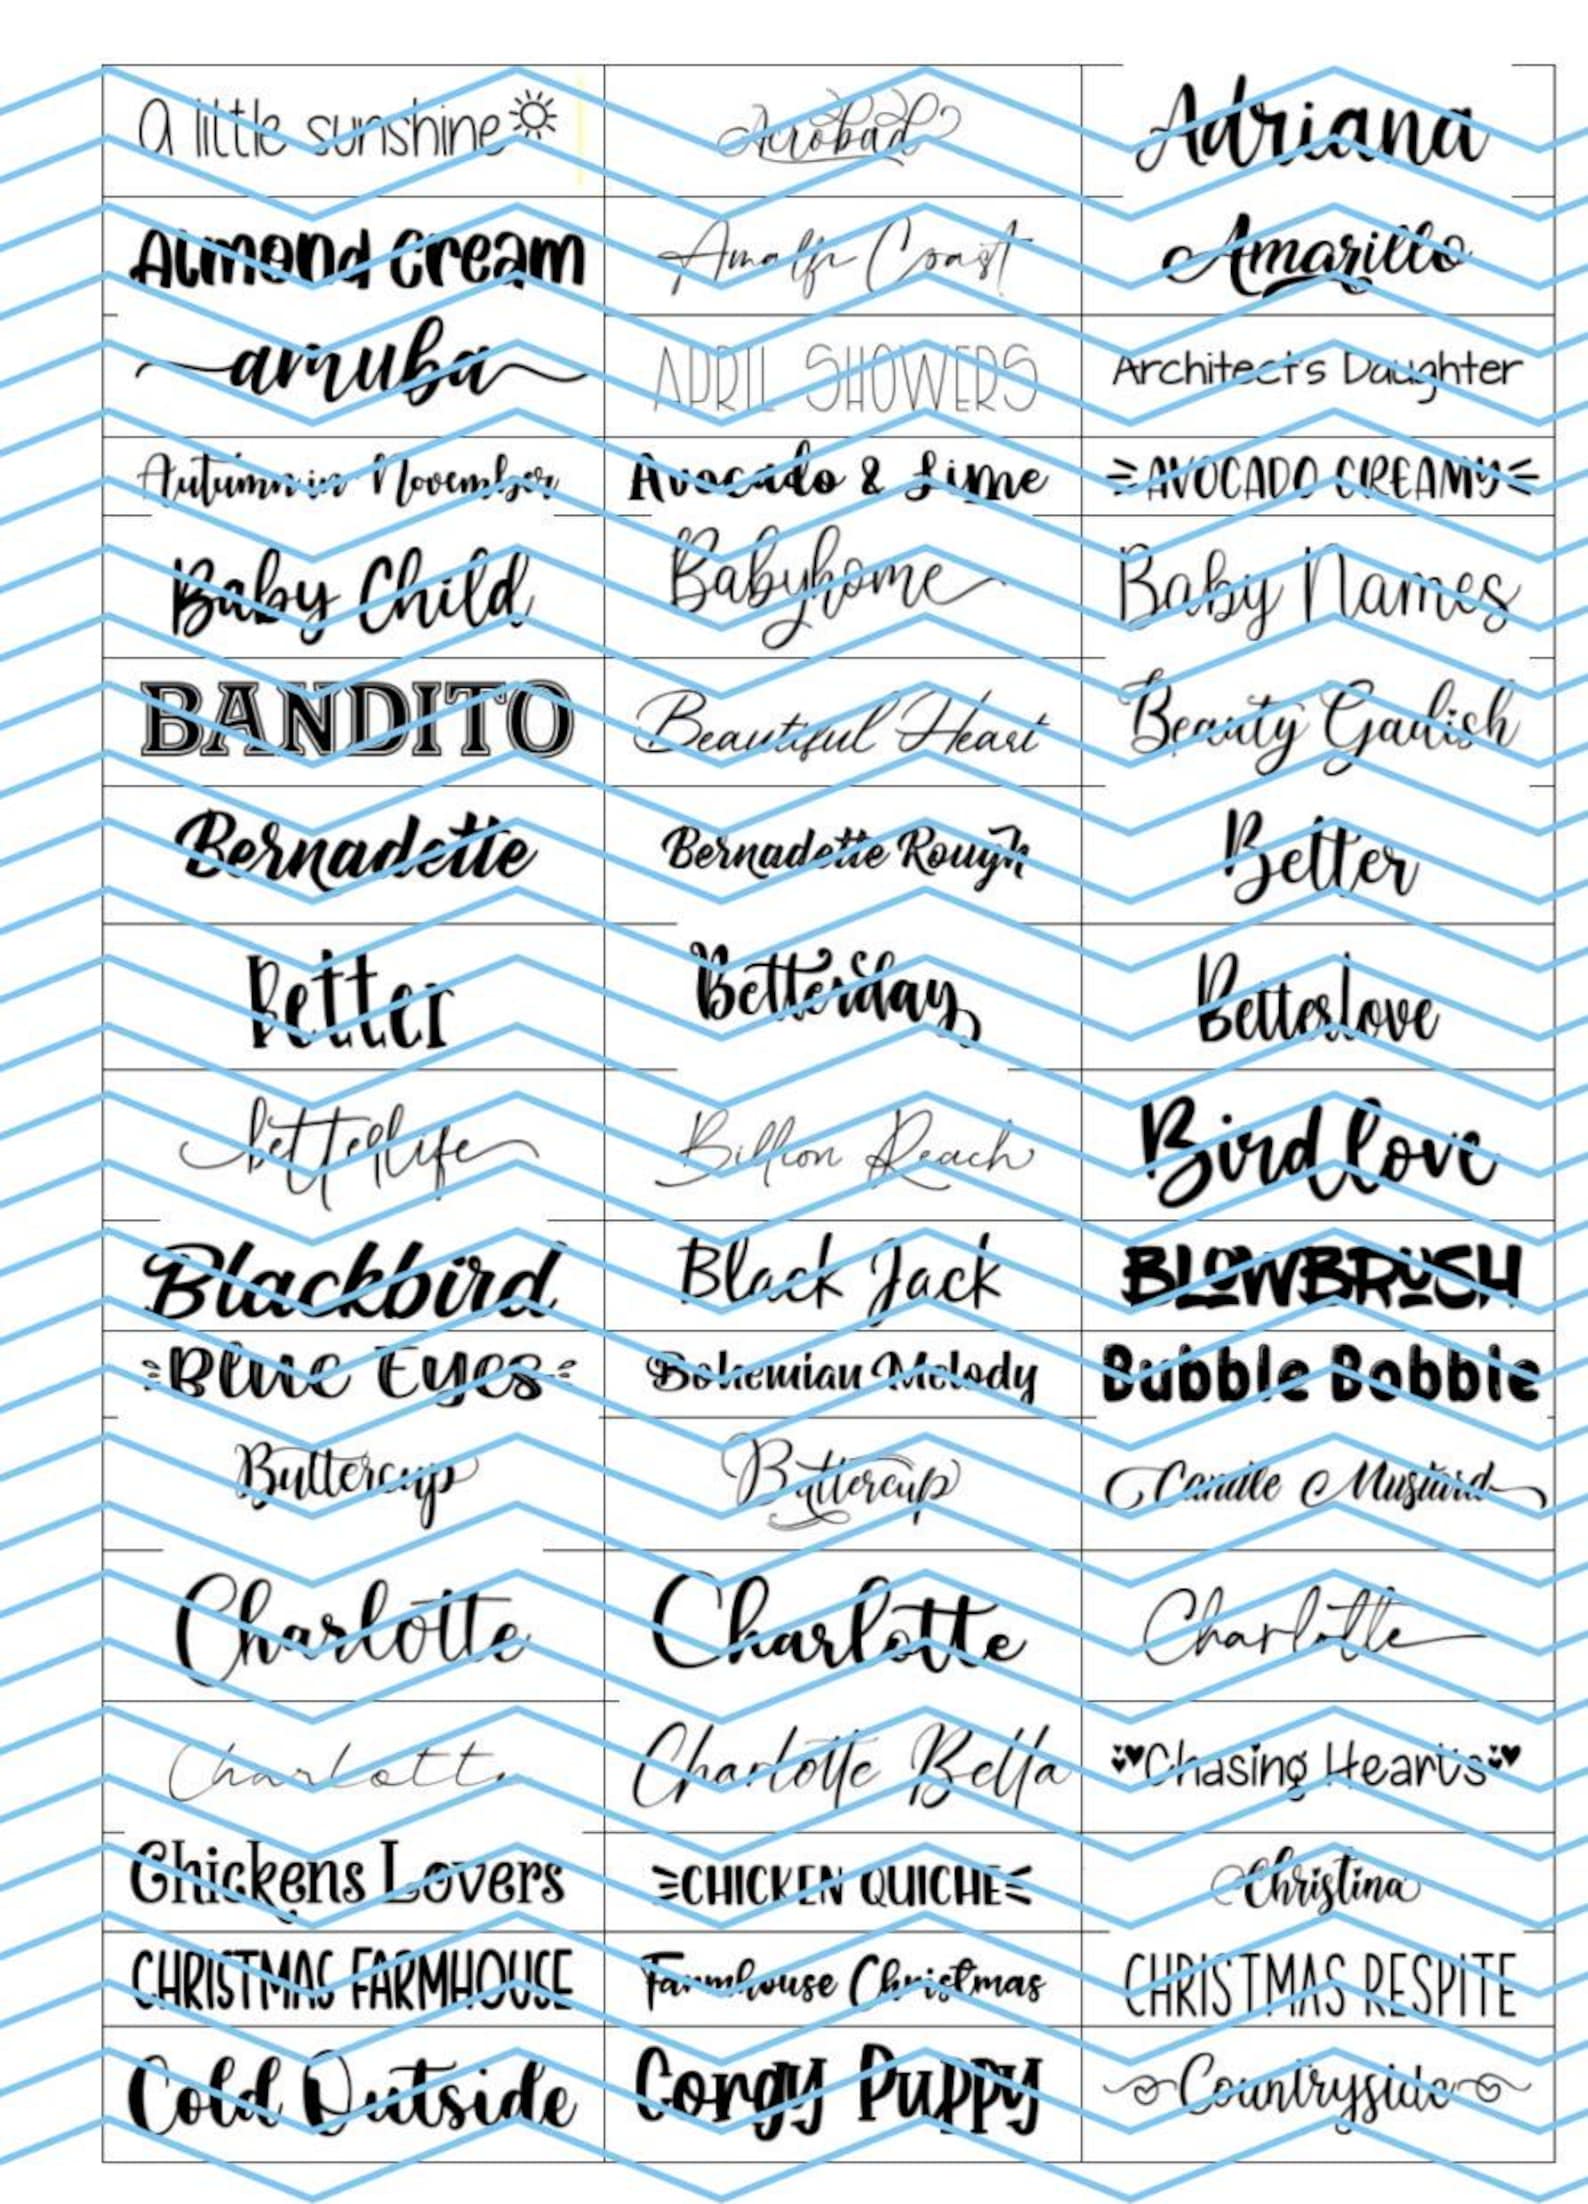 a little sunshine
Acrobad
Adriana
Almond Cream
Amalfi Coast
Amarillo
aruba
APRIL SHOWERS
Architect's Daughter
Autumn in November
Avocado & Lime
AVOCADO CREAMY
Baby Child
Babyhome
Baby Names
BANDITO
Beautiful Heart
Beauty Gadish
Bernadette
Bernadette Rough
Better
Better
Betterday
Betterlove
betterlife
Billion Reach
Bird love
Blackbird
Black Jack
BLOWBRUSH
Blue Eyes
Bohemian Melody
Bubble Bobble
Buttercup
Buttercup
Candle Mustard
Charlotte
Charlotte
Charlotte
Charlotte
Charlotte Bella
Chasing Hearts
Chickens Lovers
CHICKEN QUICHE
Christina
CHRISTMAS FARMHOUSE
Farmhouse Christmas
CHRISTMAS RESPITE
Cold Outside
Corgy Puppy
Countryside